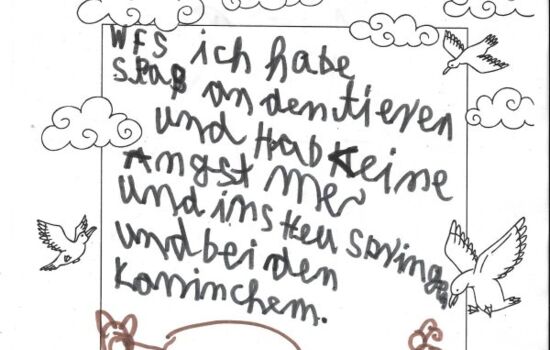 WFS ich habe
Spaß an den tieren
und Hab Keine
Angst mer
und ins Heu springen
und bei den
Kaninchem.